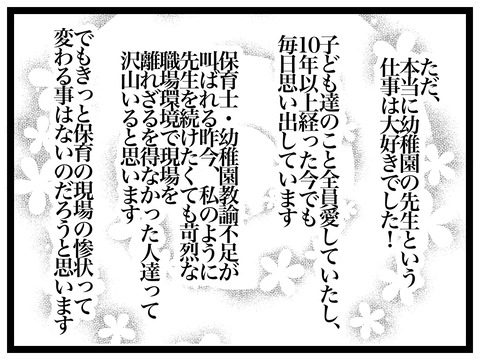 ただ、
本当に幼稚園の先生という
仕事は大好きでした！
子ども達のこと全員愛していたし、
10年以上経った今でも
毎日思い出しています
保育士・幼稚園教諭不足が
叫ばれる昨今、私のように
先生を続けたくても苛烈な
職場環境で現場を
離れざるを得なかった人達って
沢山いると思います
でもきっと保育の現場の惨状って
変わる事はないのだろうと思います